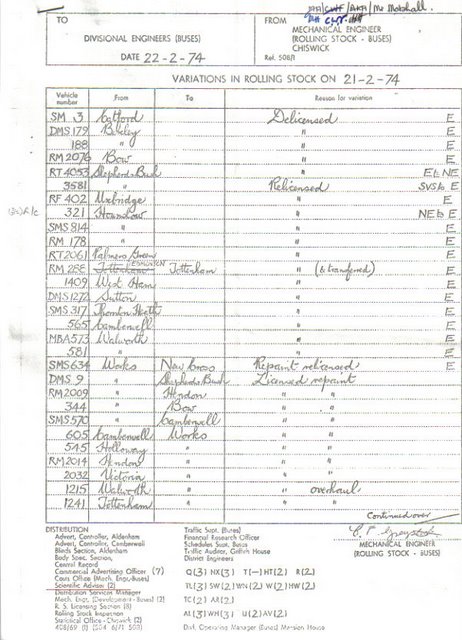 TO
DIVISIONAL ENGINEERS (BUSES)
DATE 22-2-74
FROM
MECHANICAL ENGINEER
(ROLLING STOCK - BUSES)
CHISWICK
Ref. 508/1
VARIATIONS IN ROLLING STOCK ON 21-2-74
Vehicle number From To Reason for variation
SM 3 Catford Delicensed E
DMS 179 Bexley " E
188 " " E
RM 2076 Bow " E
RT 4053 Shepherds Bush " E
3581 " Relicensed E
RF 402 Uxbridge " E
321 Hounslow " E
SMS 814 " " E
RM 178 " " E
RT 2061 Palmers Green " E
RM 288 Tottenham EDMONTON Tottenham " (& transferred) E
1409 West Ham " E
DMS 1272 Sutton " E
SMS 317 Thornton Heath " E
565 Camberwell " E
MBA 573 Walworth " E
581 " " E
SMS 634 Works New Cross Repaint relicensed E
DMS 9 " Shepherds Bush Licensed repaint
RM 2009 " Hendon " "
344 " Bow " "
SMS 570 " Camberwell " "
605 Camberwell Works " "
545 Holloway " " "
RM 2014 Hendon " " "
2032 Victoria " " "
1215 Walworth " " overhaul
1241 Tottenham " " "
Continued over
MECHANICAL ENGINEER
(ROLLING STOCK - BUSES)
DISTRIBUTION
Advert. Controller, Aldenham
Advert. Controller, Camberwell
Blinds Section, Aldenham
Body Spec. Section,
Central Record
Commercial Advertising Officer (7)
Costs Office (Mech. Engr.-Buses)
Scientific Advisor (2)
Distribution Services Manager
Mech. Engr. (Development - Buses) (2)
R. S. Licensing Section (3)
Rolling Stock Inspection
Statistical Office - Chiswick (2)
Traffic Supt. (Buses)
Financial Research Officer
Schedules Supt. Buses
Traffic Auditor, Griffith House
District Engineers
Q(3) NX(3) T(-) HT(2) R(2)
TL(3) SW(2) WN(2) W(2) HW(2)
TC(2) AR(2)
AL(3) WH(3) U(2) AV(2)
Dist. Operating Manager (Buses) Mansion House